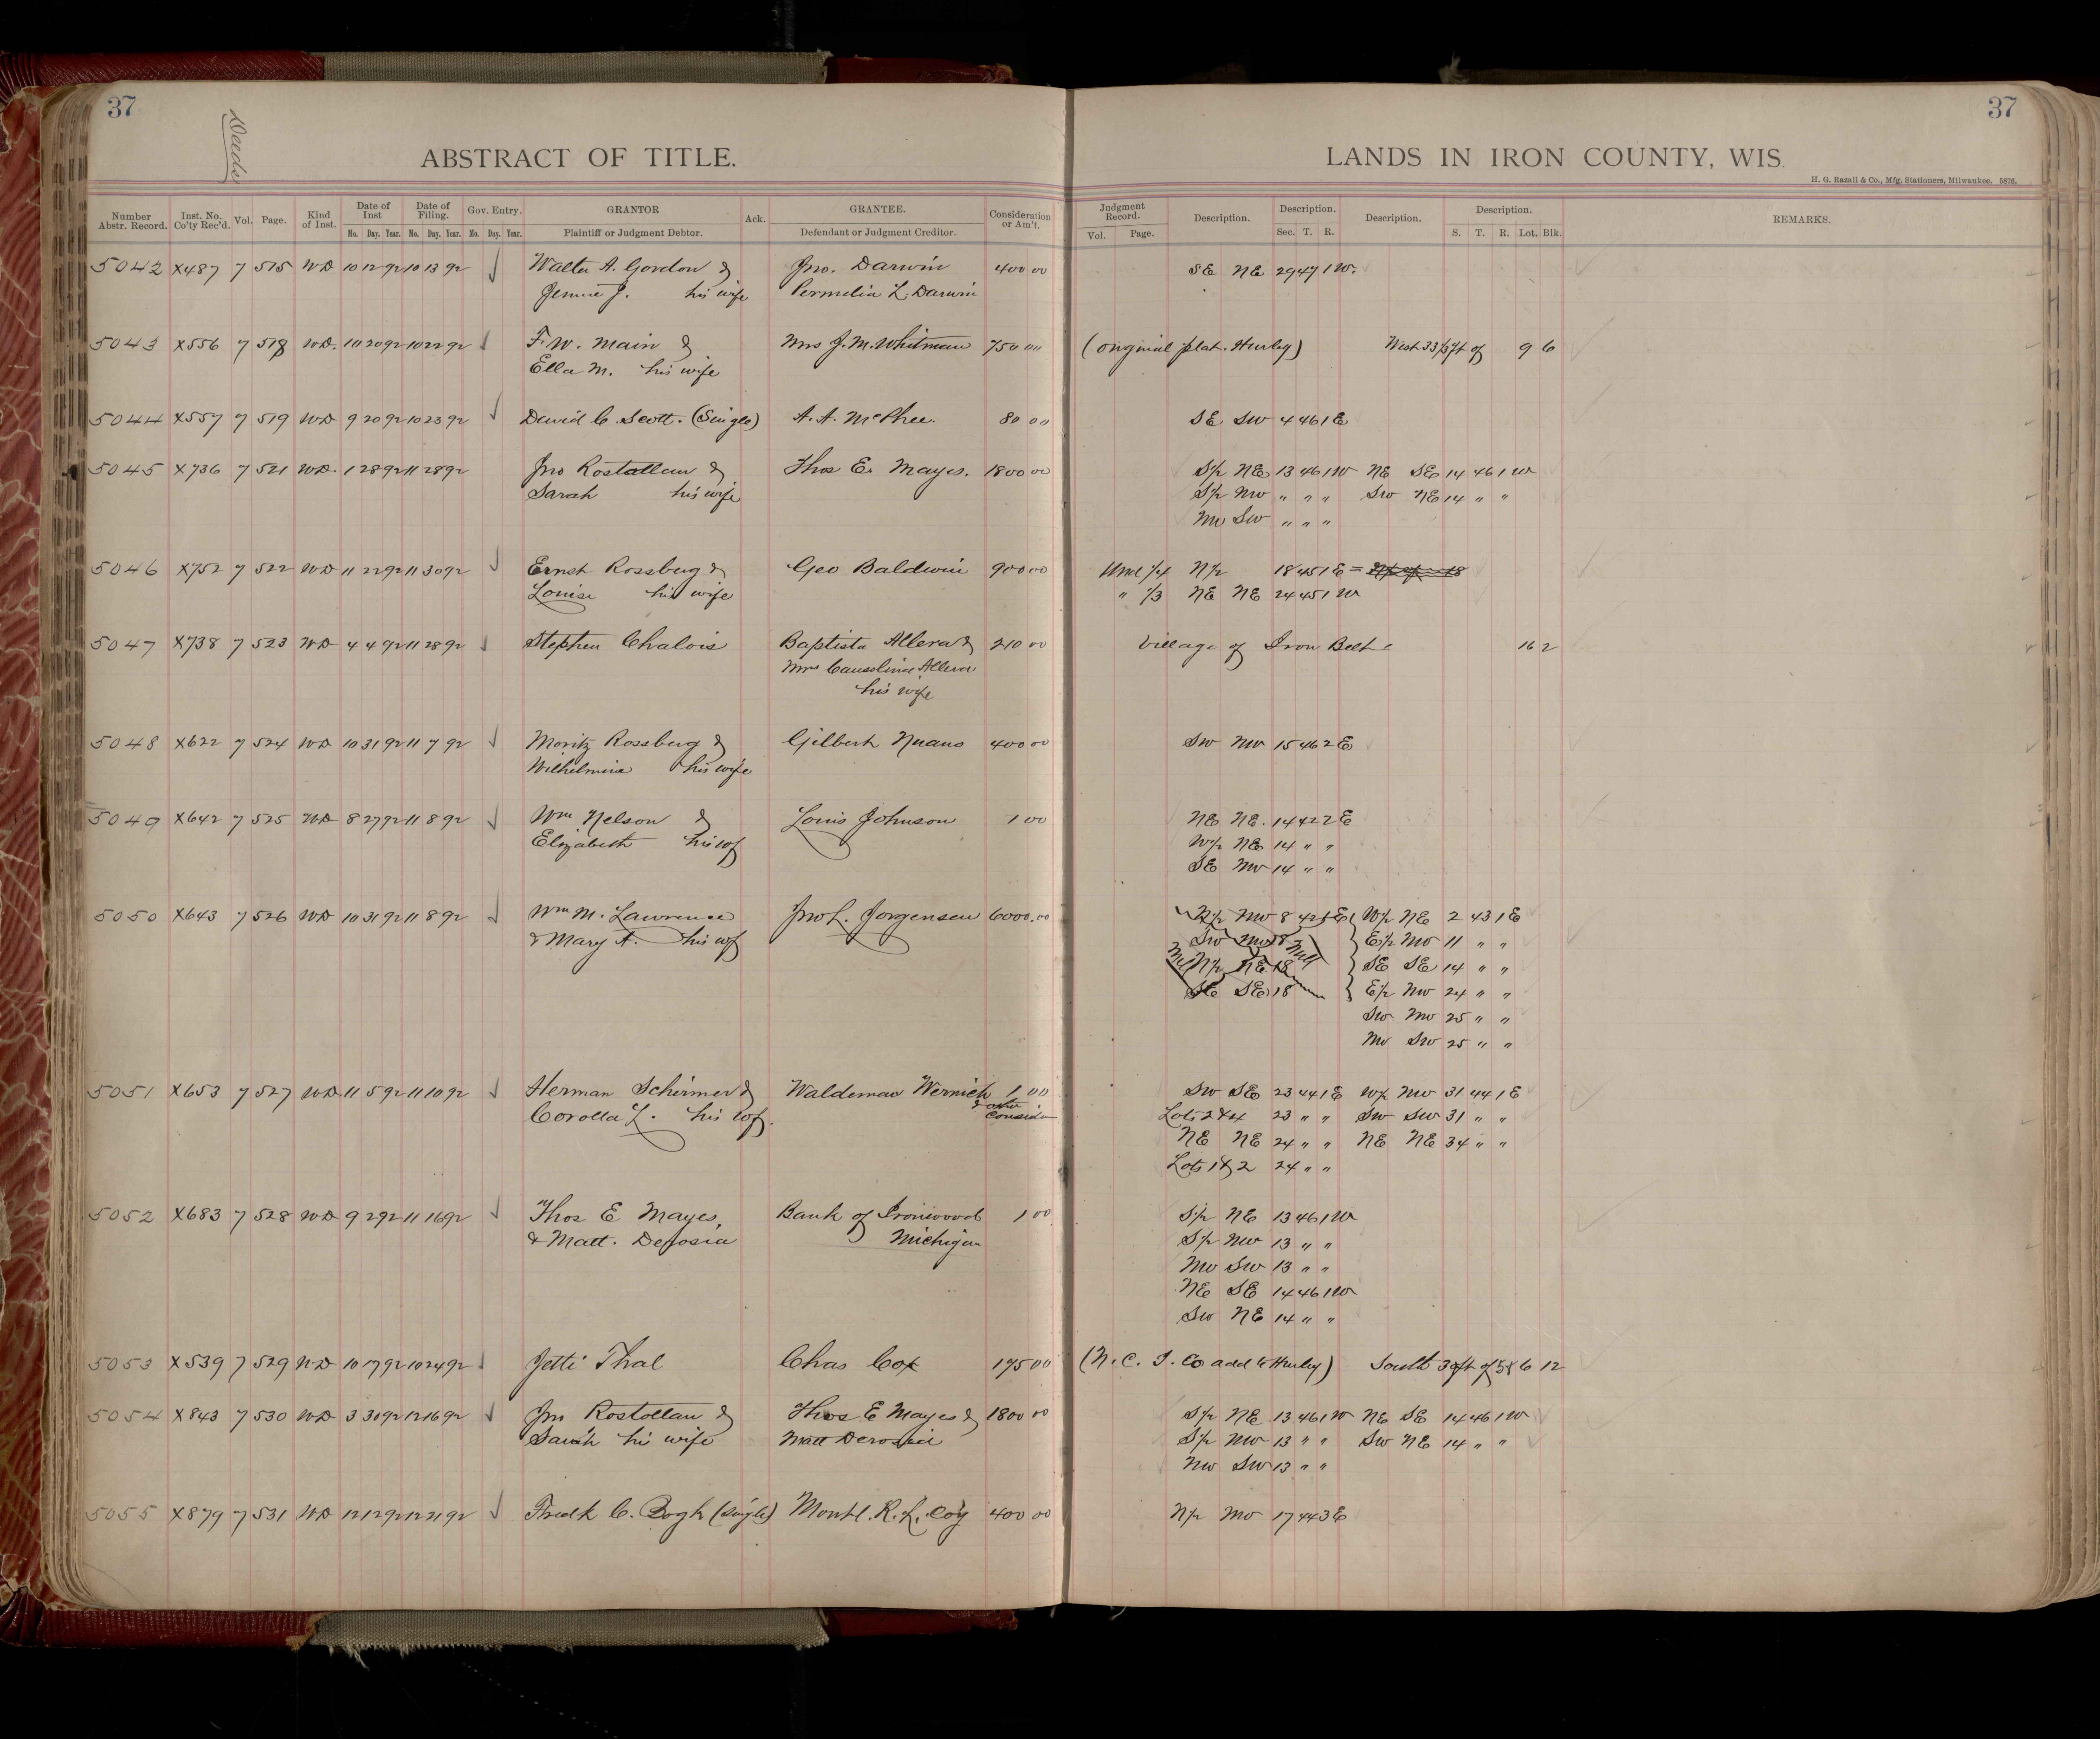 37
37
Deeds
ABSTRACT OF TITLE.
LANDS IN IRON COUNTY, WIS.
H. G. Razall & Co., Mfg. Stationers, Milwaukee. 5876.
Number Abstr. Record. Inst. No. Co'ty Rec'd. Vol. Page. Kind of Inst. Date of Inst Mo. Day. Year. Date of Filing. Mo. Day. Year. Gov. Entry. Mo. Day. Year. GRANTOR Plaintiff or Judgment Debtor. Ack. GRANTEE. Defendant or Judgment Creditor. Consideration or Am't. Judgment Record. Vol. Page. Description. Description. Sec. T. R. Description. Description. S. T. R. Lot. Blk. REMARKS.
5042 X487 7 515 WD 10 12 92 10 13 92 Walter A. Gordon & Jno. Darwin 400 00 SE NE 29 47 1 W.
Jennie J. his wife Permelia L. Darwin
5043 X556 7 518 WD. 10 20 92 10 22 92 F. W. Main & Mrs J. M. Whitman 750 00 (Original plat. Hurley) West 33 1/3 ft of 9 6
Ella M. his wife
5044 X557 7 519 WD 9 20 92 10 23 92 David C. Scott. (Single) A. A. McPhee. 80 00 SE SW 4 46 1 E
5045 X736 7 521 WD. 1 28 92 11 28 92 Jno Rostallan & Thos E. Mayes. 1800 00 S/2 NE 13 46 1 W NE SE 14 46 1 W
Sarah his wife S/2 NW " " " SW NE 14 " "
NW SW " " "
5046 X752 7 522 WD 11 22 92 11 30 92 Ernst Rossberg & Geo Baldwin 900 00 Und 1/4 N/2 18 45 1 E =
Louise his wife " 1/3 NE NE 24 45 1 W
5047 X738 7 523 WD 4 4 92 11 28 92 Stephen Chalois Baptista Allera & 210 00 Village of Iron Belt 16 2
Mrs Allera
his wife
5048 X622 7 524 WD 10 31 92 11 7 92 Moritz Rossberg & Gilbert 400 00 SW NW 15 46 2 E
Wilhelmina his wife
5049 X642 7 525 WD 8 27 92 11 8 92 Wm Nelson & Louis Johnson 1 00 NE NE. 14 42 2 E
Elizabeth his wf W/2 NE 14 " "
SE NW 14 " "
5050 X643 7 526 WD 10 31 92 11 8 92 Wm M. Lawrence Jno L. Jorgensen 6000.00 N/2 NW 8 42 1 E W/2 NE 2 43 1 E
& Mary A. his wf SW NW 8 E/2 NW 11 " "
N/2 NE 18 SE SE 14 " "
SE SE 18 E/2 NW 24 " "
SW NW 25 " "
NW SW 25 " "
5051 X653 7 527 WD 11 5 92 11 10 92 Herman Schirmer & Waldemar Wernich 1 00 SW SE 23 44 1 E W/2 NW 31 44 1 E
Corolla L. his wf. & other Consider Lots 2 & 4 23 " " SW SW 31 " "
NE NE 24 " " NE NE 34 " "
Lots 1 & 2 24 " "
5052 X683 7 528 WD 9 2 92 11 16 92 Thos E Mayes, Bank of Ironwood 1 00 S/2 NE 13 46 1 W
& Matt. Derosia Michigan S/2 NW 13 " "
NW SW 13 " "
NE SE 14 46 1 W
SW NE 14 " "
5053 X539 7 529 WD 10 17 92 10 24 92 Jetti Thal Chas Cox 175 00 (N. C. I. Co add to Hurley) South 30 ft of 5 & 6 12
5054 X843 7 530 WD 3 30 92 12 16 92 Jno Rostollan & Thos E Mayes & 1800 00 S/2 NE 13 46 1 W NE SE 14 46 1 W
Sarah his wife Matt Derosia S/2 NW 13 " " SW NE 14 " "
NW SW 13 " "
5055 X879 7 531 WD 12 12 92 12 21 92 Fredk C. Bogk (Single) Montl. R. L. Coy 400 00 N/2 NW 17 44 3 E